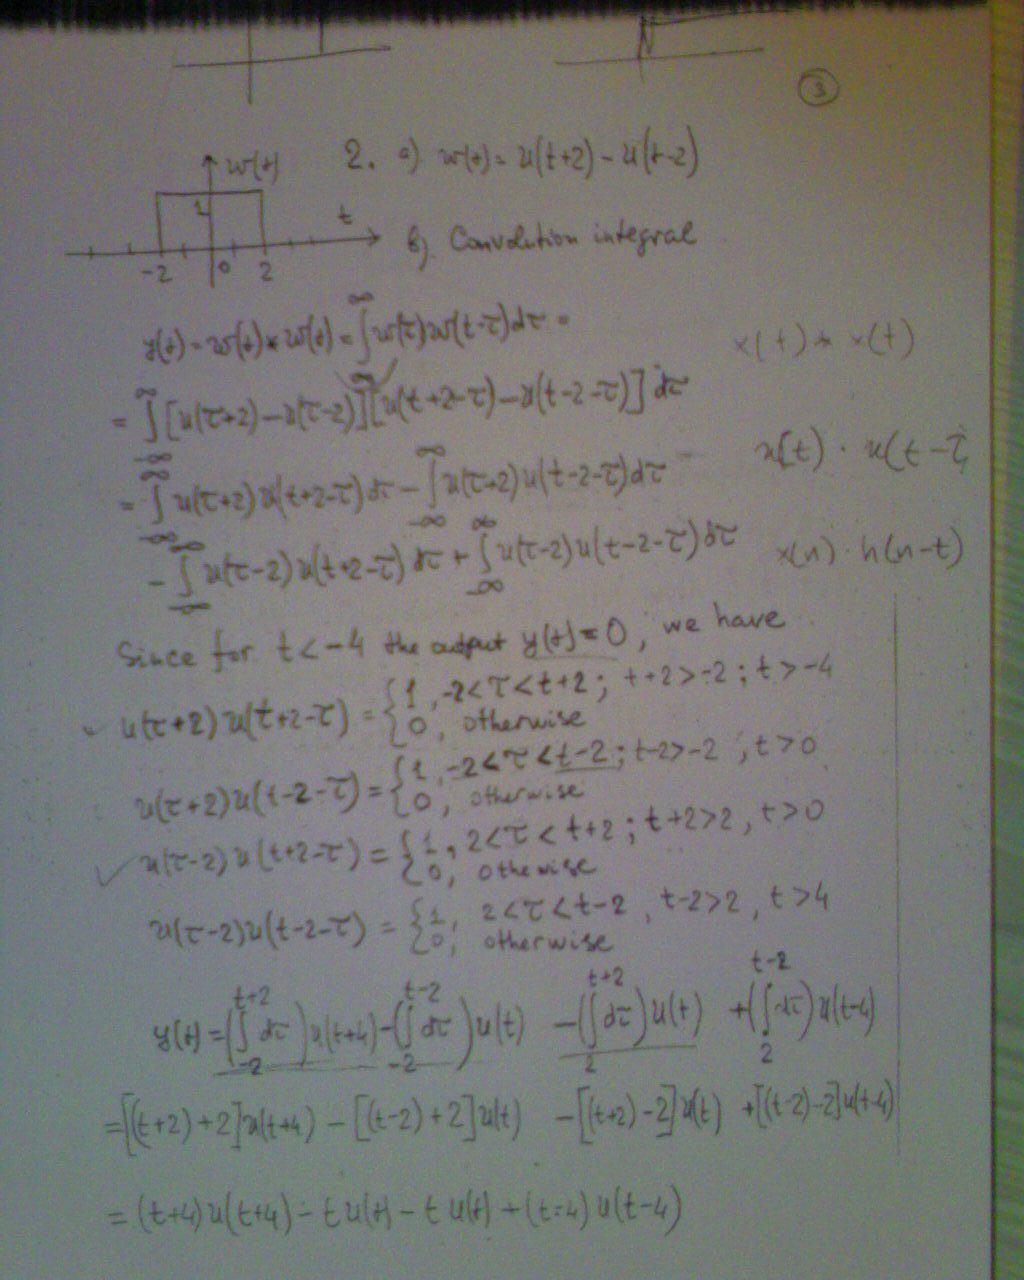 3
2. a) w(t) = u(t+2) - u(t-2)
w(t)
1
t
-2 0 2
b). Convolution integral
y(t) = w(t) * w(t) = ∫^∞ w(τ) w(t-τ) dτ =
x(t) * x(t)
= ∫_{-∞}^{∞} [u(τ+2) - u(τ-2)] [u(t+2-τ) - u(t-2-τ)] dτ
= ∫_{-∞}^{∞} u(τ+2) u(t+2-τ) dτ - ∫_{-∞}^{∞} u(τ+2) u(t-2-τ) dτ
u(t) · u(t-τ)
- ∫_{-∞}^{∞} u(τ-2) u(t+2-τ) dτ + ∫_{-∞}^{∞} u(τ-2) u(t-2-τ) dτ
x(n) · h(n-t)
Since for t < -4 the output y(t) = 0, we have
u(τ+2) u(t+2-τ) = { 1, -2<τ<t+2; t+2>-2; t>-4
0, otherwise
u(τ+2) u(t-2-τ) = { 1, -2<τ<t-2; t-2>-2, t>0
0, otherwise
✓ u(τ-2) u(t+2-τ) = { 1, 2<τ<t+2; t+2>2, t>0
0, othewise
u(τ-2) u(t-2-τ) = { 1, 2<τ<t-2, t-2>2, t>4
0, otherwise
y(t) = (∫_{-2}^{t+2} dτ) u(t+4) - (∫_{-2}^{t-2} dτ) u(t) - (∫_{2}^{t+2} dτ) u(t) + (∫_{2}^{t-2} dτ) u(t-4)
= [(t+2)+2] u(t+4) - [(t-2)+2] u(t) - [(t+2)-2] u(t) + [(t-2)-2] u(t-4)
= (t+4) u(t+4) - t u(t) - t u(t) + (t-4) u(t-4)